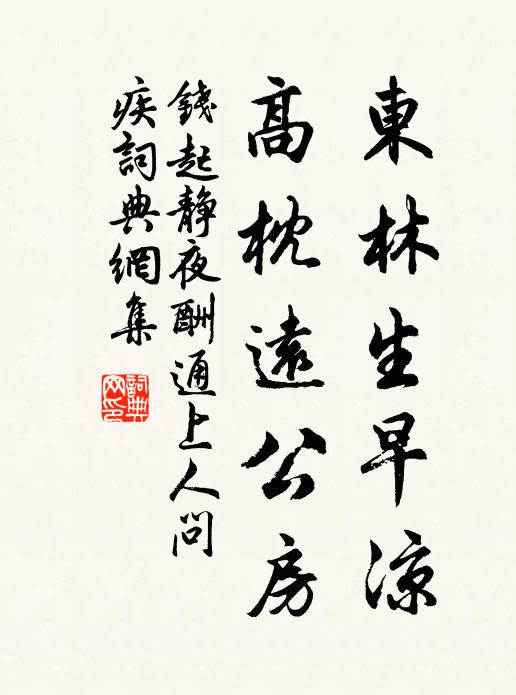 東林生早凉
高枕遠公房
錢起靜夜酬通上人問
疾詞典網集
詞典
网印